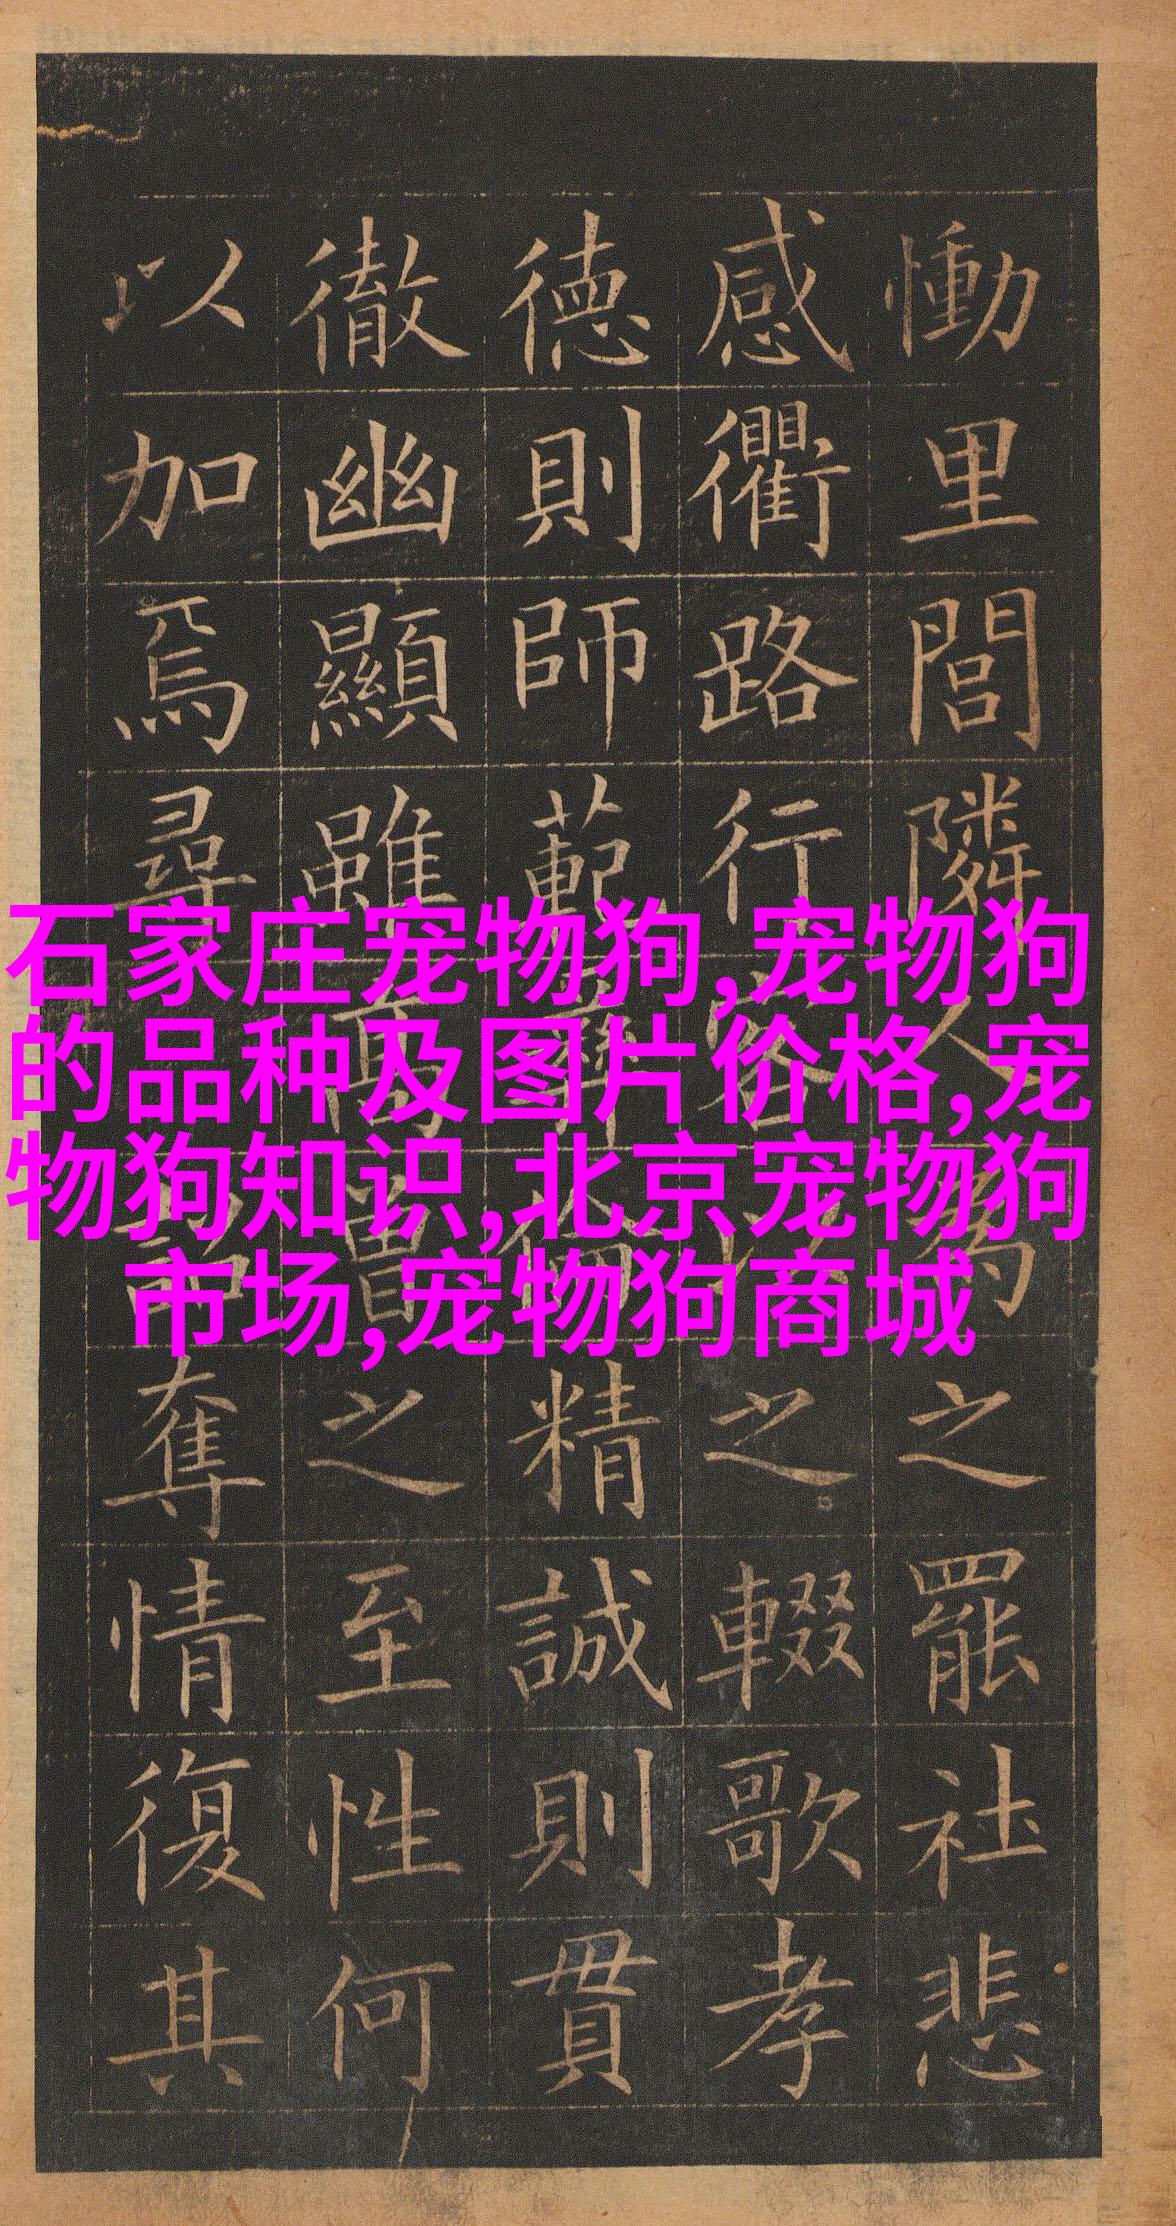 慟里閭隣人為之罷社悲
感衢路行客以之輟歌孝
德則師範彝倫精誠則貫
徹幽顯雖高曾之至性何
以加焉尋詔奪情復其
石家庄宠物狗,宠物狗
的品种及图片价格,宠
物狗知识,北京宠物狗
市场,宠物狗商城